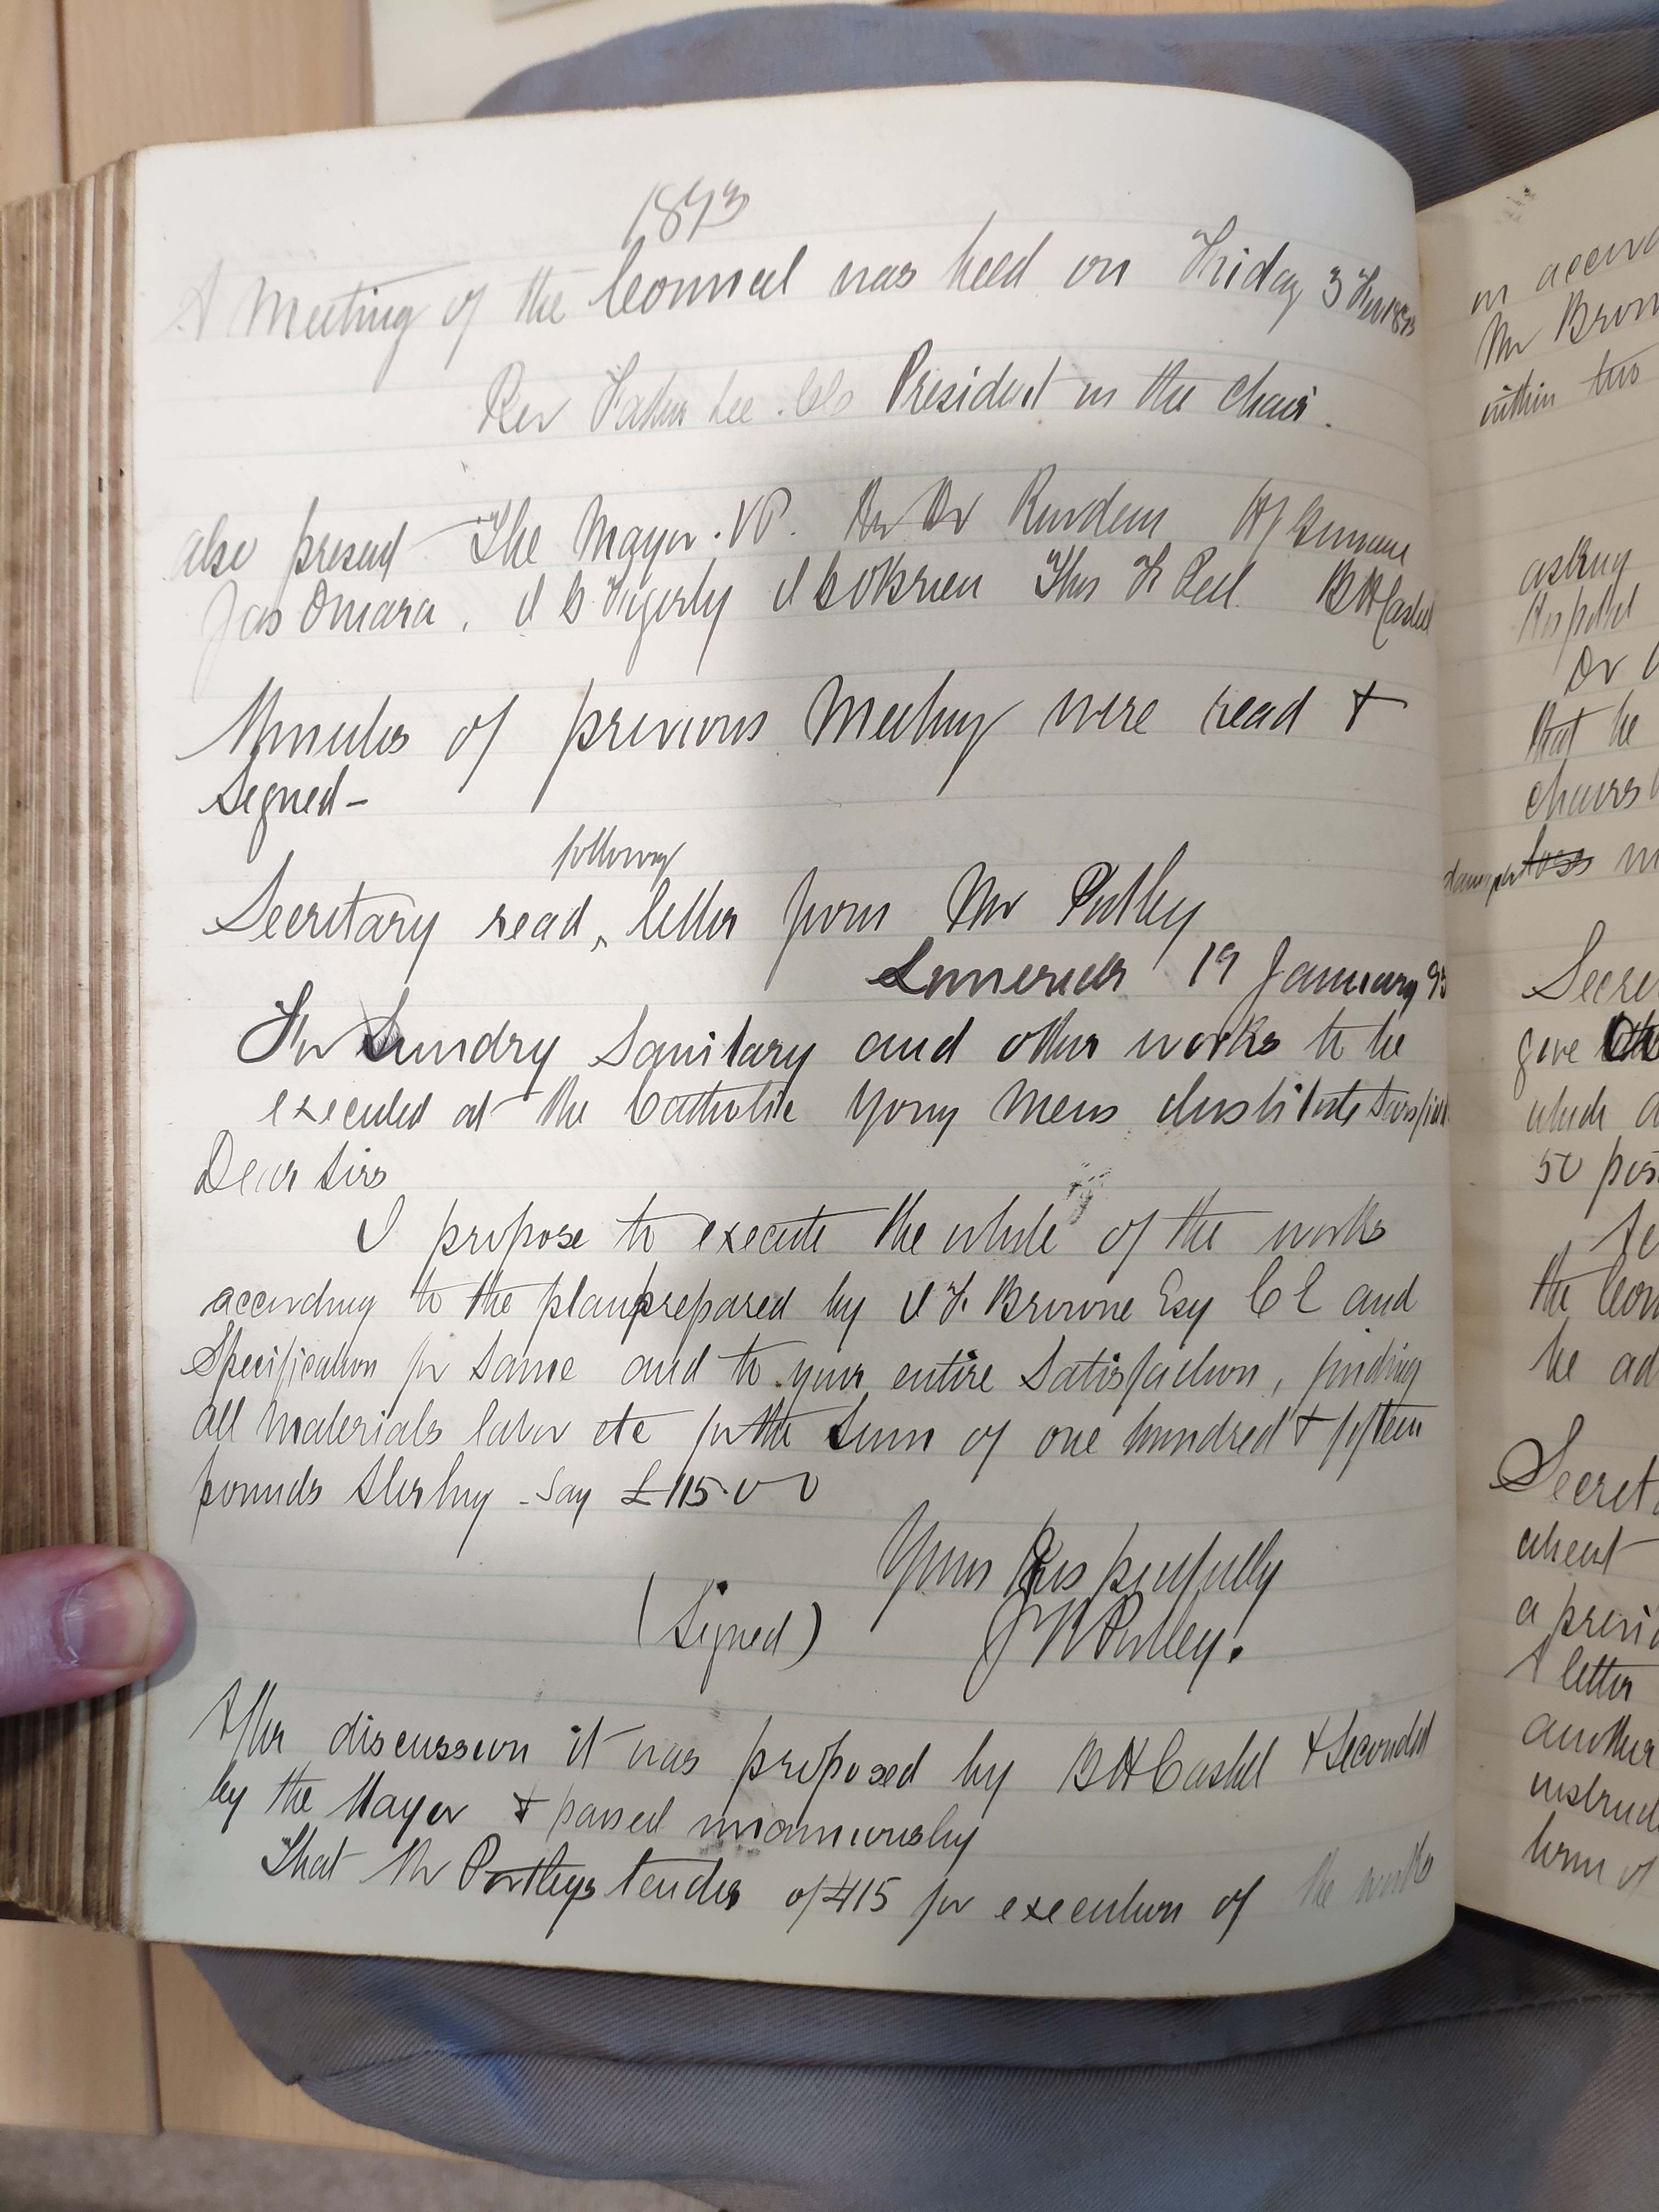 1893
A Meeting of the Council was held on Friday 3 Feb 1893
Rev Father Lee President in the Chair.
also present The Mayor. VP.
Jas Omara. OBrien Thos BHCashel
Minutes of previous Meeting were read &
Signed-
following
Secretary read ‸ letter from Mr Putley
Limerick 19 January 93
For Sundry Sanitary and other works to be
executed at the Catholic Young Mens Institute
Dear Sirs
I propose to execute the whole of the works
according to the plan prepared by Browne Esq CE and
Specification for same and to your entire Satisfaction, finding
all Materials labor etc for the Sum of one hundred & fifteen
pounds Sterling - Say £115.0 0
Yours Respectfully
(Signed)
After discussion it was proposed by BH Cashel & Seconded
by the Mayor & passed unanimously
That Mr tender of £115 for execution of the works
in accord
Mr Brow
within two
asking
Dr
that he
chairs
loss
Secre
give
which
50
the Coun
be ad
Secret
a previ
A letter
another
instruct
term of